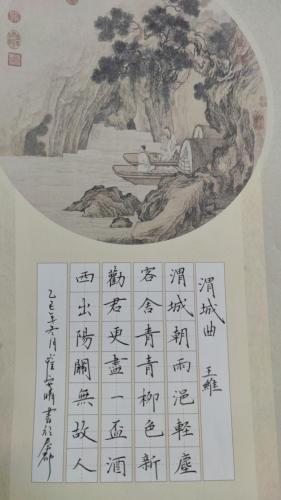 渭城曲 王維
渭城朝雨浥輕塵
客舍青青柳色新
勸君更盡一盃酒
西出陽關無故人
乙巳年六月